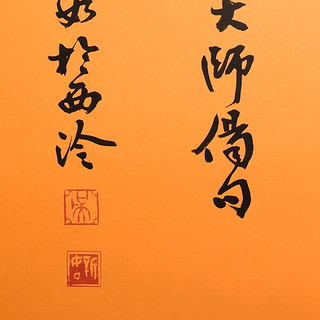 大師偈句
於西泠